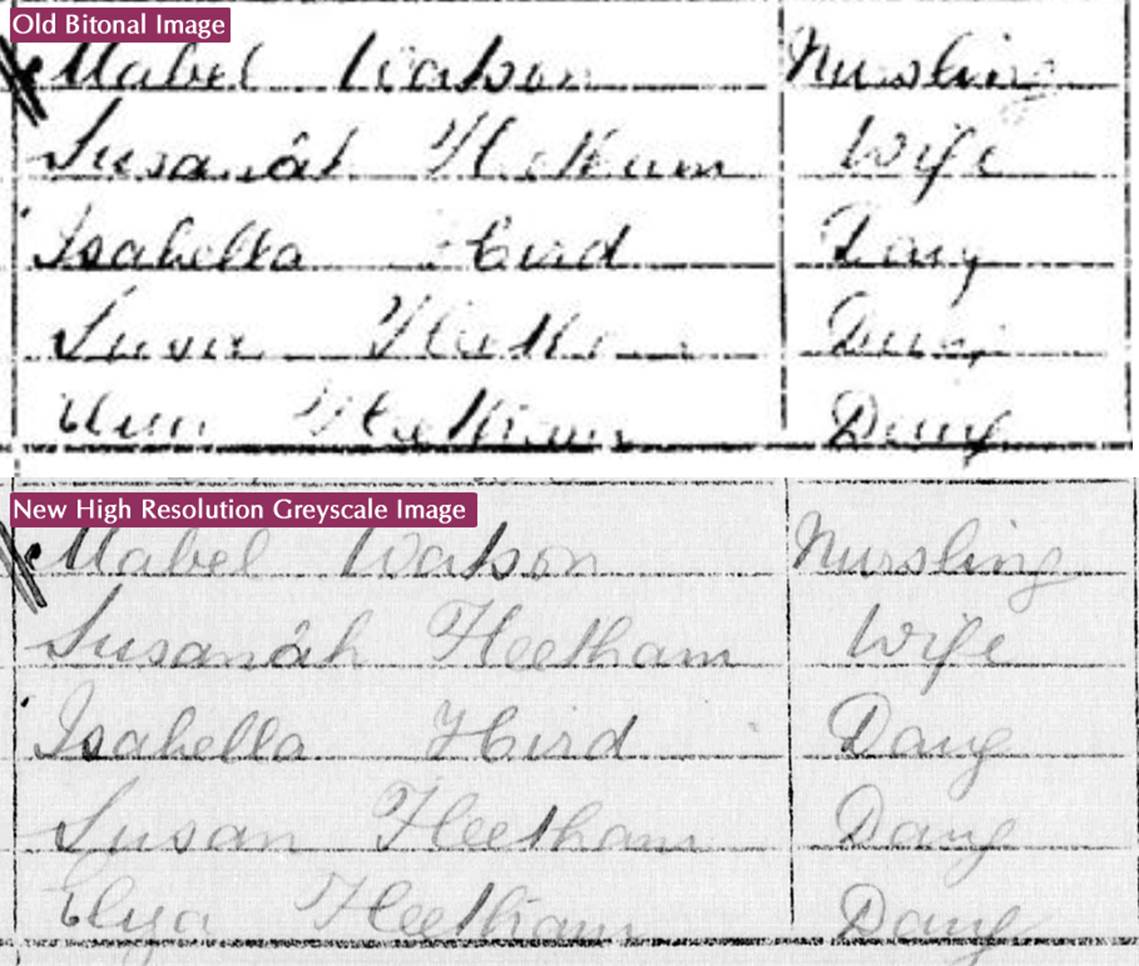 Old Bitonal Image
Mabel Watson Nursling
Susanah Heetham Wife
Isabella Hird Daug
Susan Heetham Daug
Heetham Daug
New High Resolution Greyscale Image
Mabel Watson Nursling
Susanah Heetham Wife
Isabella Hird Daug
Susan Heetham Daug
Elya Heetham Daug